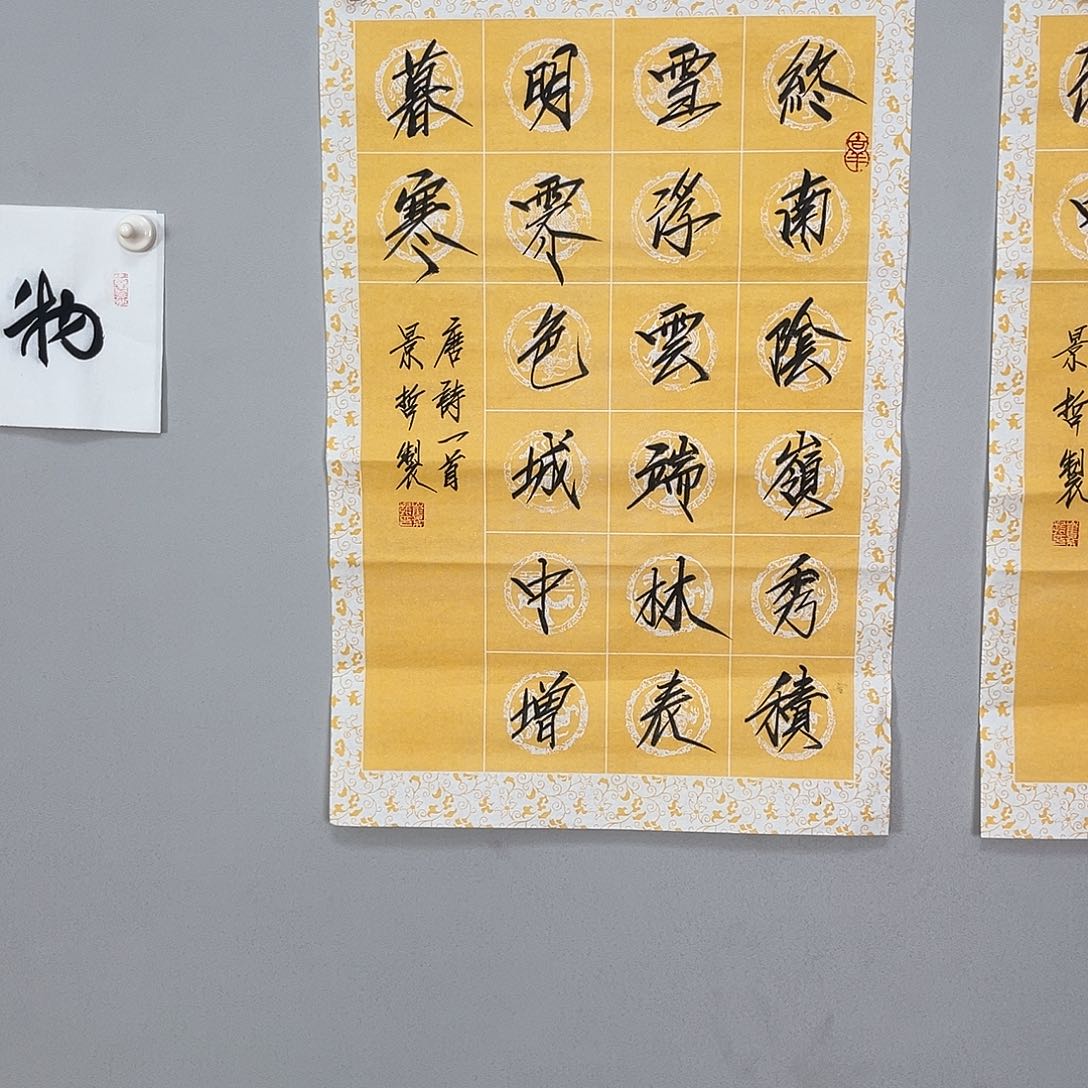 終南陰嶺秀積
雪浮雲端林表
明霁色城中增
暮寒
唐詩一首
景哲製
吉羊
物
景哲製